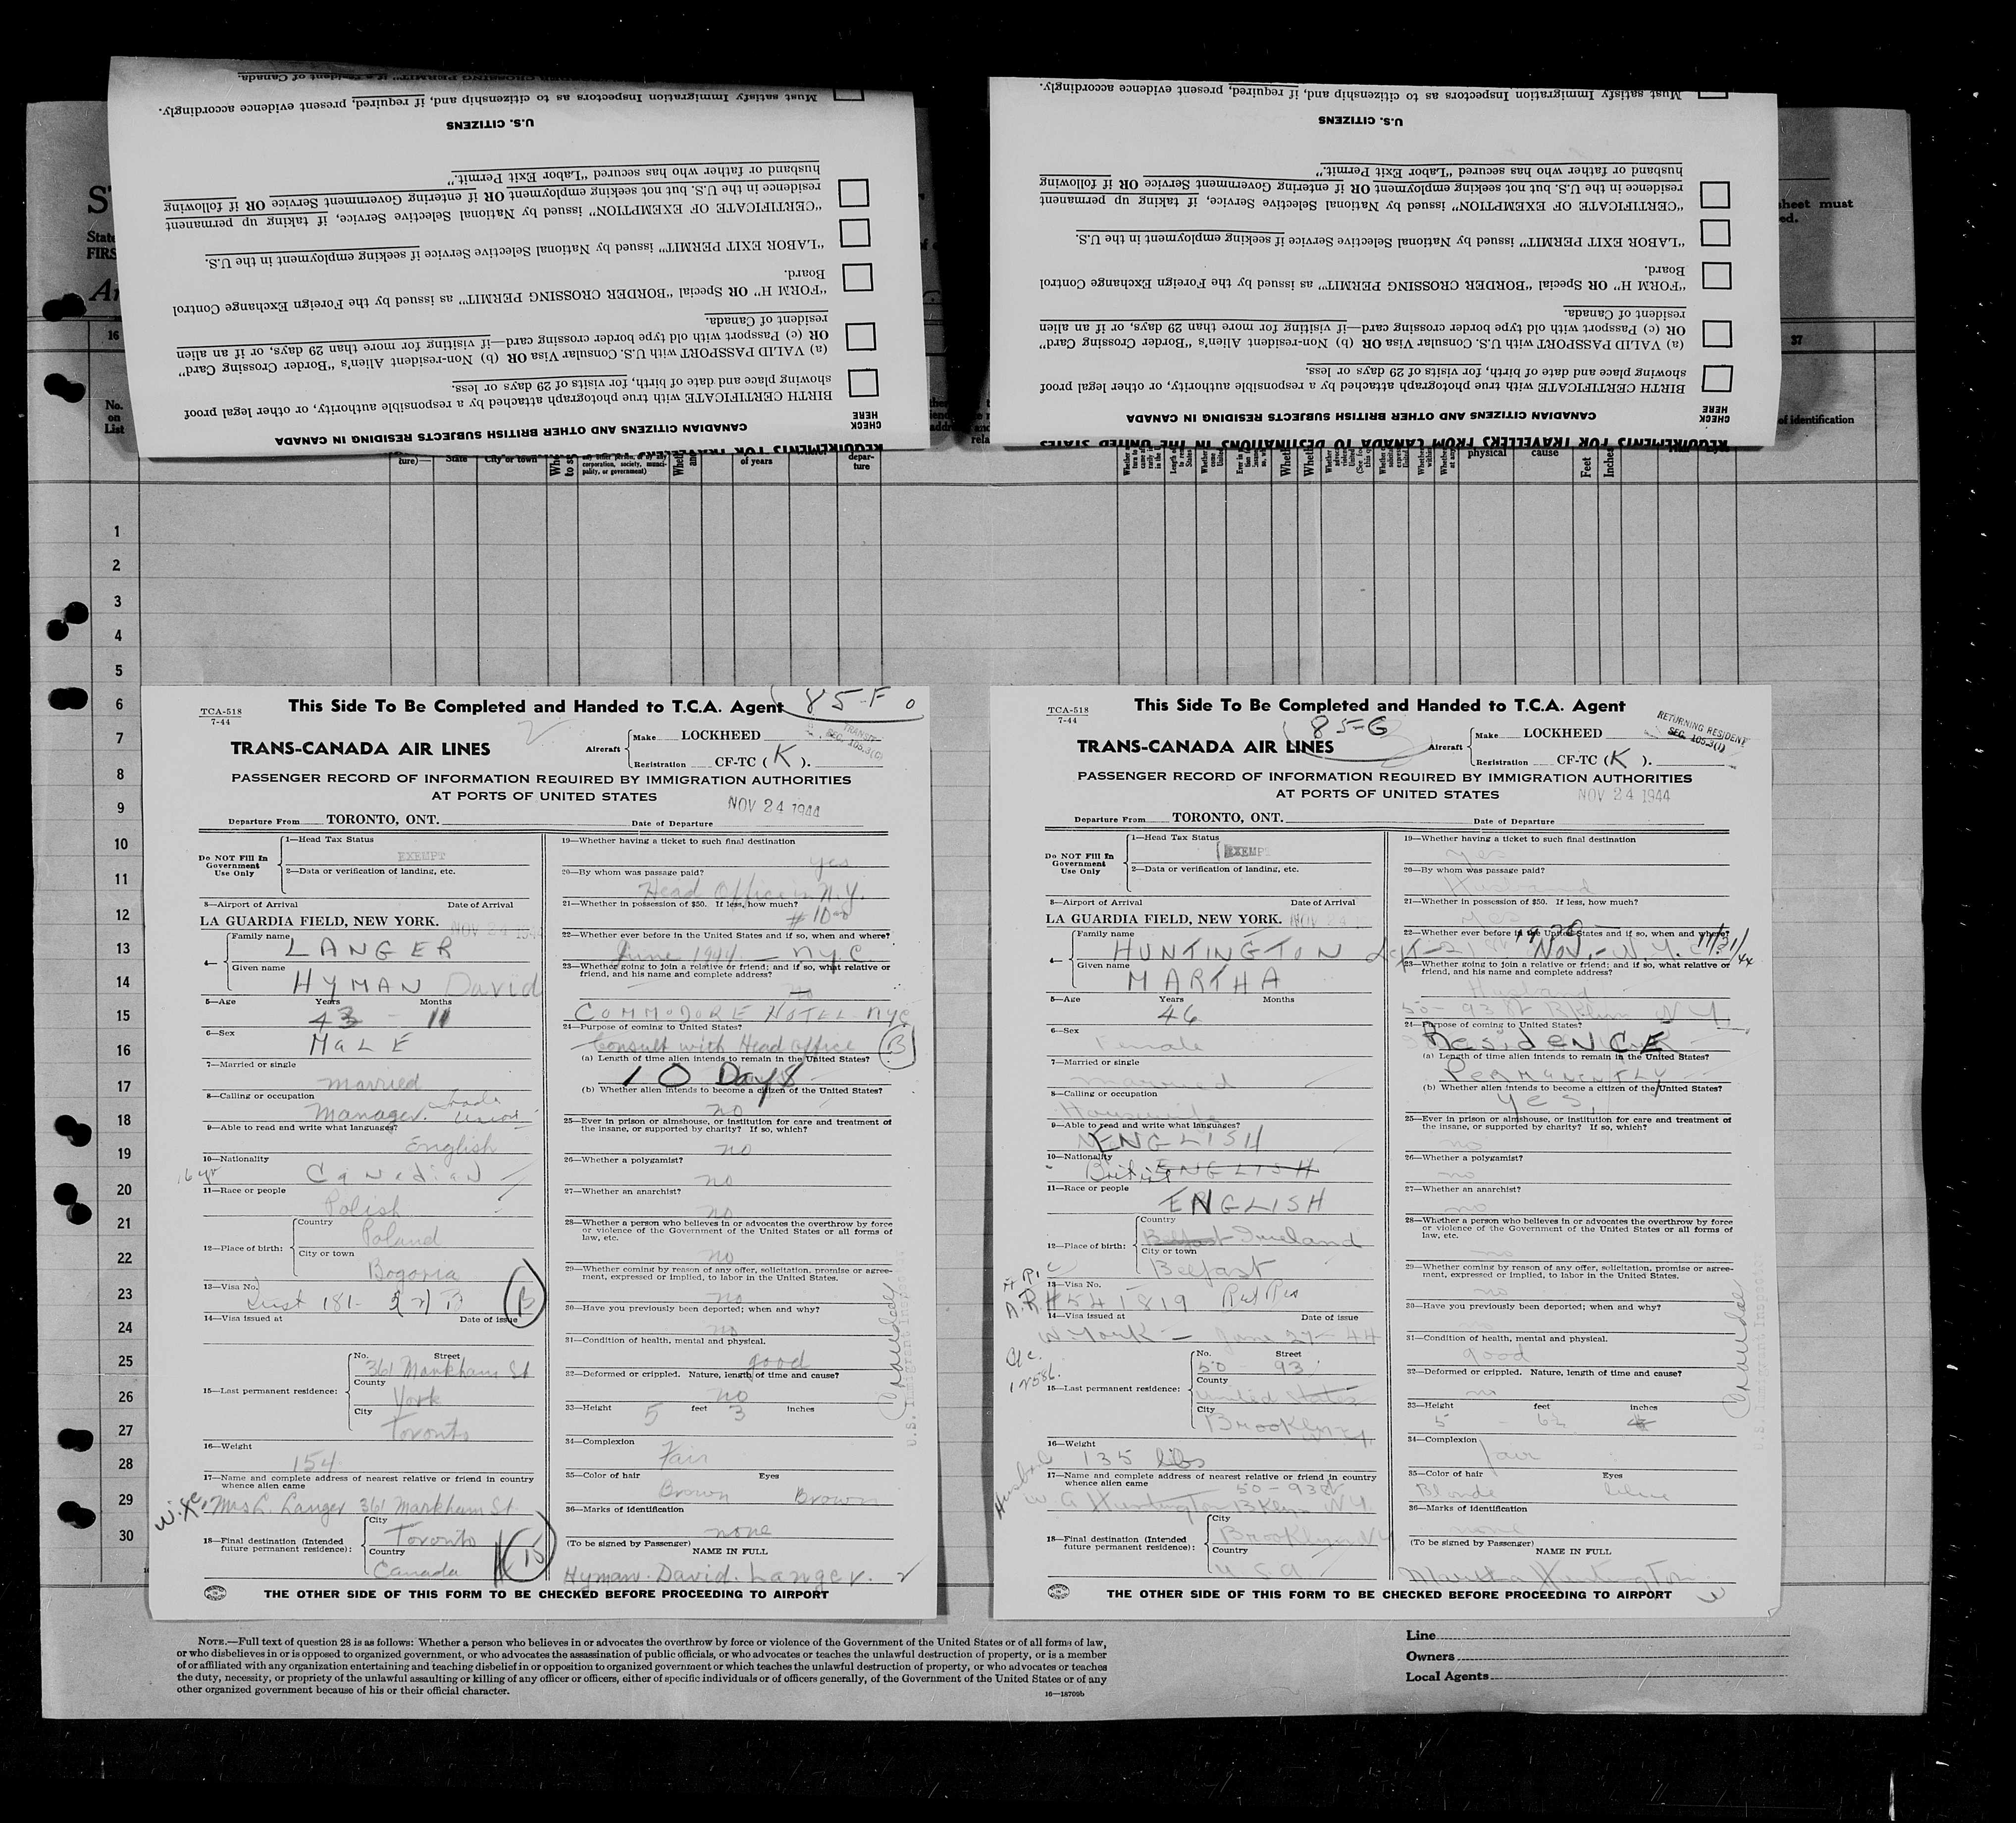 resident of Canada.
Must satisfy Immigration Inspectors as to citizenship and, if required, present evidence accordingly.
U.S. CITIZENS
husband or father who has secured "Labor Exit Permit."
residence in the U.S. but not seeking employment OR if entering Government Service OR if following
"CERTIFICATE OF EXEMPTION" issued by National Selective Service, if taking up permanent
"LABOR EXIT PERMIT" issued by National Selective Service if seeking employment in the U.S.
Board.
"FORM H" OR Special "BORDER CROSSING PERMIT" as issued by the Foreign Exchange Control
resident of Canada.
OR (c) Passport with old type border crossing card—if visiting for more than 29 days, or if an alien
(a) VALID PASSPORT with U.S. Consular Visa OR (b) Non-resident Alien's "Border Crossing Card"
showing place and date of birth, for visits of 29 days or less.
BIRTH CERTIFICATE with true photograph attached by a responsible authority, or other legal proof
CHECK HERE
CANADIAN CITIZENS AND OTHER BRITISH SUBJECTS RESIDING IN CANADA
REQUIREMENTS FOR TRAVELLERS FROM CANADA TO DESTINATIONS IN THE UNITED STATES
Must satisfy Immigration Inspectors as to citizenship and, if required, present evidence accordingly.
U.S. CITIZENS
husband or father who has secured "Labor Exit Permit."
residence in the U.S. but not seeking employment OR if entering Government Service OR if following
"CERTIFICATE OF EXEMPTION" issued by National Selective Service, if taking up permanent
"LABOR EXIT PERMIT" issued by National Selective Service if seeking employment in the U.S.
Board.
"FORM H" OR Special "BORDER CROSSING PERMIT" as issued by the Foreign Exchange Control
resident of Canada.
OR (c) Passport with old type border crossing card—if visiting for more than 29 days, or if an alien
(a) VALID PASSPORT with U.S. Consular Visa OR (b) Non-resident Alien's "Border Crossing Card"
showing place and date of birth, for visits of 29 days or less.
BIRTH CERTIFICATE with true photograph attached by a responsible authority, or other legal proof
CHECK HERE
CANADIAN CITIZENS AND OTHER BRITISH SUBJECTS RESIDING IN CANADA
REQUIREMENTS FOR TRAVELLERS FROM CANADA TO DESTINATIONS IN THE UNITED STATES
sheet must
16
37
No. on List
of identification
ture)—
State
City or town
corporation, society, munici-
pality, or government)
of years
depar-
ture
physical
cause
Feet
Inches
1
2
3
4
5
6
7
8
9
10
11
12
13
14
15
16
17
18
19
20
21
22
23
24
25
26
27
28
29
30
This Side To Be Completed and Handed to T.C.A. Agent
85-F
TCA-518
7-44
TRANS-CANADA AIR LINES
Aircraft
Make LOCKHEED
Registration CF-TC ( K ).
TRANSIT
SEC. 105.3(C)
PASSENGER RECORD OF INFORMATION REQUIRED BY IMMIGRATION AUTHORITIES
AT PORTS OF UNITED STATES
NOV 24 1944
Departure From TORONTO, ONT. Date of Departure
Do NOT Fill In Government Use Only
1—Head Tax Status
EXEMPT
2—Data or verification of landing, etc.
3—Airport of Arrival Date of Arrival
LA GUARDIA FIELD, NEW YORK. NOV 24 1944
4— Family name LANGER
Given name HYMAN David
5—Age Years Months
43 - 11
6—Sex
MALE
7—Married or single
Married
8—Calling or occupation
Manager. Trade Union
9—Able to read and write what languages?
English
10—Nationality
Canadian
11—Race or people
Polish
12—Place of birth: Country Poland
City or town Bogoria
13—Visa No.
14—Visa issued at Date of issue
15—Last permanent residence: No. Street 361 Markham St
County York
City Toronto
16—Weight
154
17—Name and complete address of nearest relative or friend in country
whence alien came
Wife, Mrs L. Langer 361 Markham St
18—Final destination (Intended
future permanent residence): City Toronto
Country Canada
19—Whether having a ticket to such final destination
yes
20—By whom was passage paid?
Head Office in N.Y.
21—Whether in possession of $50. If less, how much?
22—Whether ever before in the United States and if so, when and where?
June 1944 — N.Y.C.
23—Whether going to join a relative or friend; and if so, what relative or
friend, and his name and complete address?
no
COMMODORE HOTEL NYC
24—Purpose of coming to United States?
Consult with Head Office (B)
(a) Length of time alien intends to remain in the United States?
10 Days
(b) Whether alien intends to become a citizen of the United States?
no
25—Ever in prison or almshouse, or institution for care and treatment of
the insane, or supported by charity? If so, which?
no
26—Whether a polygamist?
no
27—Whether an anarchist?
no
28—Whether a person who believes in or advocates the overthrow by force
or violence of the Government of the United States or all forms of
law, etc.
no
29—Whether coming by reason of any offer, solicitation, promise or agree-
ment, expressed or implied, to labor in the United States.
no
30—Have you previously been deported; when and why?
no
31—Condition of health, mental and physical.
good
32—Deformed or crippled. Nature, length of time and cause?
no
33—Height 5 feet 3 inches
34—Complexion
Fair
35—Color of hair Eyes
Brown Brown
36—Marks of identification
none
(To be signed by Passenger)
NAME IN FULL
Hyman. David. Langer.
U.S. Immigrant Inspector
THE OTHER SIDE OF THIS FORM TO BE CHECKED BEFORE PROCEEDING TO AIRPORT
This Side To Be Completed and Handed to T.C.A. Agent
85-G
TCA-518
7-44
TRANS-CANADA AIR LINES
Aircraft
Make LOCKHEED
Registration CF-TC ( K ).
RETURNING RESIDENT
SEC. 105.3(1)
PASSENGER RECORD OF INFORMATION REQUIRED BY IMMIGRATION AUTHORITIES
AT PORTS OF UNITED STATES
NOV 24 1944
Departure From TORONTO, ONT. Date of Departure
Do NOT Fill In Government Use Only
1—Head Tax Status
EXEMPT
2—Data or verification of landing, etc.
3—Airport of Arrival Date of Arrival
LA GUARDIA FIELD, NEW YORK. NOV 24
4— Family name HUNTINGTON
Given name MARTHA
5—Age Years Months
46
6—Sex
Female
7—Married or single
Married
8—Calling or occupation
Housewife
9—Able to read and write what languages?
ENGLISH
10—Nationality
British ENGLISH
11—Race or people
ENGLISH
12—Place of birth: Country Belfast Ireland
City or town Belfast
13—Visa No.
541819
14—Visa issued at Date of issue
N. York — June 27-44
15—Last permanent residence: No. Street 50 - 93
County United States
City Brooklyn N.Y.
16—Weight
135 lbs
17—Name and complete address of nearest relative or friend in country
whence alien came
Husband W G Huntington 50-93 St Bklyn NY
18—Final destination (Intended
future permanent residence): City Brooklyn NY
Country USA
19—Whether having a ticket to such final destination
yes
20—By whom was passage paid?
Husband
21—Whether in possession of $50. If less, how much?
yes
22—Whether ever before in the United States and if so, when and where?
23—Whether going to join a relative or friend; and if so, what relative or
friend, and his name and complete address?
Husband
50-93 St Bklyn N Y.
24—Purpose of coming to United States?
ResideNCE
(a) Length of time alien intends to remain in the United States?
PERMANENTLY
(b) Whether alien intends to become a citizen of the United States?
yes
25—Ever in prison or almshouse, or institution for care and treatment of
the insane, or supported by charity? If so, which?
no
26—Whether a polygamist?
no
27—Whether an anarchist?
no
28—Whether a person who believes in or advocates the overthrow by force
or violence of the Government of the United States or all forms of
law, etc.
no
29—Whether coming by reason of any offer, solicitation, promise or agree-
ment, expressed or implied, to labor in the United States.
no
30—Have you previously been deported; when and why?
no
31—Condition of health, mental and physical.
good
32—Deformed or crippled. Nature, length of time and cause?
no
33—Height 5 feet inches
34—Complexion
fair
35—Color of hair Eyes
Blonde blue
36—Marks of identification
none
(To be signed by Passenger)
NAME IN FULL
Martha Huntington
THE OTHER SIDE OF THIS FORM TO BE CHECKED BEFORE PROCEEDING TO AIRPORT
NOTE.—Full text of question 28 is as follows: Whether a person who believes in or advocates the overthrow by force or violence of the Government of the United States or of all forms of law,
or who disbelieves in or is opposed to organized government, or who advocates the assassination of public officials, or who advocates or teaches the unlawful destruction of property, or is a member
of or affiliated with any organization entertaining and teaching disbelief in or opposition to organized government or which teaches the unlawful destruction of property, or who advocates or teaches
the duty, necessity, or propriety of the unlawful assaulting or killing of any officer or officers, either of specific individuals or of officers generally, of the Government of the United States or of any
other organized government because of his or their official character.
16—18709b
Line
Owners
Local Agents